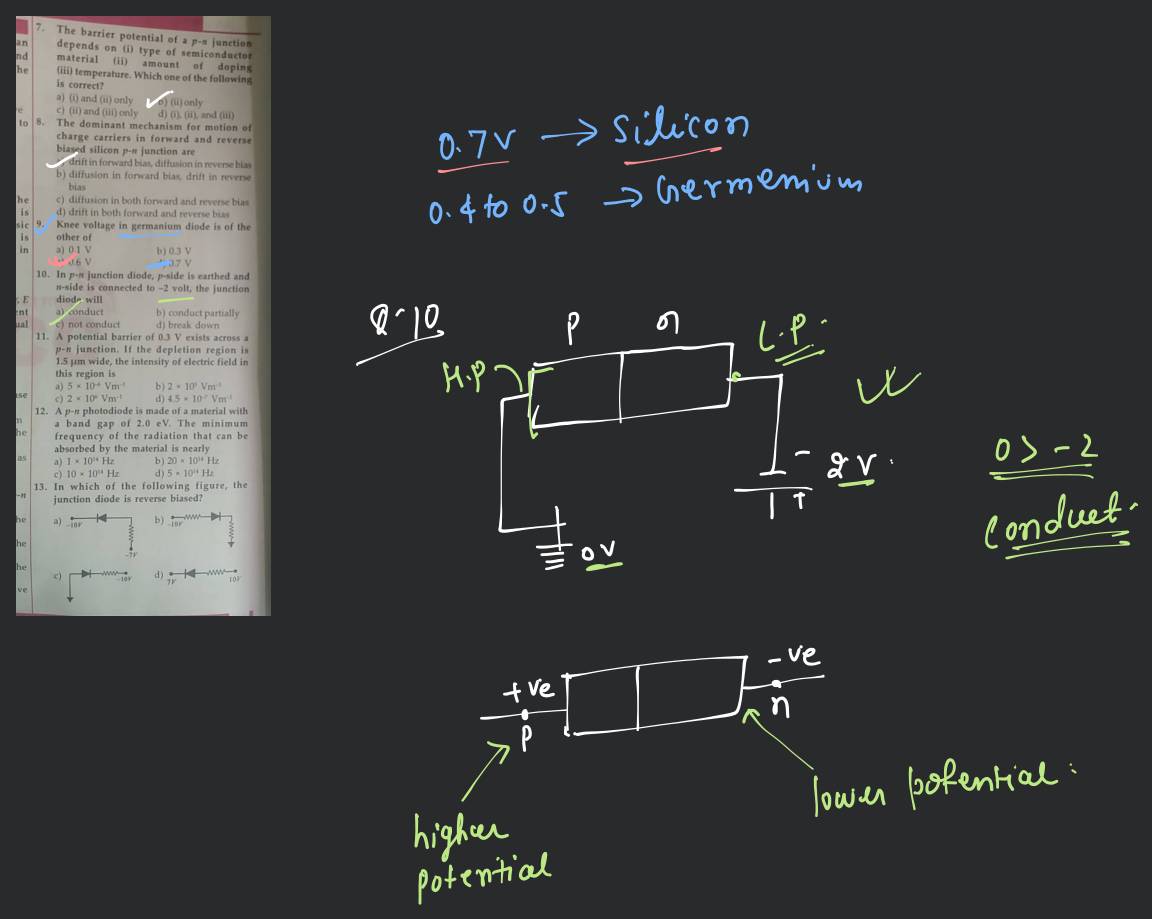 7. The barrier potential of a p-n junction
depends on (i) type of semiconductor
material (ii) amount of doping
(iii) temperature. Which one of the following
is correct?
a) (i) and (ii) only b) (ii) only
c) (ii) and (iii) only d) (i), (ii), and (iii)
8. The dominant mechanism for motion of
charge carriers in forward and reverse
biased silicon p-n junction are
drift in forward bias, diffusion in reverse bias
b) diffusion in forward bias, drift in reverse
bias
c) diffusion in both forward and reverse bias
d) drift in both forward and reverse bias
9. Knee voltage in germanium diode is of the
other of
a) 0.1 V b) 0.3 V
0.6 V 0.7 V
10. In p-n junction diode, p-side is earthed and
n-side is connected to -2 volt, the junction
diode will
a) conduct b) conduct partially
c) not conduct d) break down
11. A potential barrier of 0.3 V exists across a
p-n junction. If the depletion region is
1.5 µm wide, the intensity of electric field in
this region is
a) 5 × 10⁻⁶ Vm⁻¹ b) 2 × 10⁵ Vm⁻¹
c) 2 × 10⁶ Vm⁻¹ d) 4.5 × 10⁻⁷ Vm⁻¹
12. A p-n photodiode is made of a material with
a band gap of 2.0 eV. The minimum
frequency of the radiation that can be
absorbed by the material is nearly
a) 1 × 10¹⁴ Hz b) 20 × 10¹⁴ Hz
c) 10 × 10¹⁴ Hz d) 5 × 10¹⁴ Hz
13. In which of the following figure, the
junction diode is reverse biased?
a) -10V -7V b) -10V
c) -10V d) 7V 10V
0.7V → Silicon
0.4 to 0.5 → Germenium
Q-10
P n
H.P L.P.
- 2V
+
0V
0 > -2
Conduct.
+ve -ve
P n
higher
potential
lower potential: